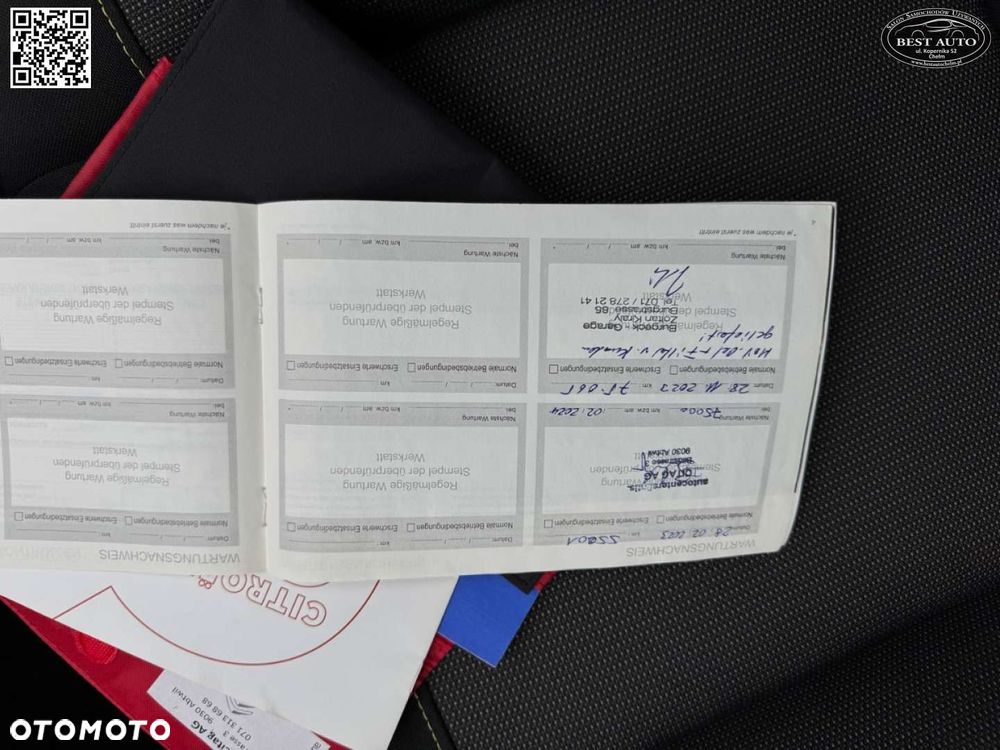 SALON SAMOCHODÓW UŻYWANYCH
BEST AUTO
ul. Kopernika 52
Chełm
www.bestautochelm.pl
WARTUNGSNACHWEIS
Datum: 28.02.2023 km:
Normale Betriebsbedingungen Erschwerte Einsatzbedingungen
autocenter
TOLTAG AG
9030 Abtwil
Nächste Wartung
bei: 75000 km bzw. am: .02.2024
Datum: 28.11.2023 km:
Normale Betriebsbedingungen Erschwerte Einsatzbedingungen
geliefert
Burgeck-Garage
Zoltan Kiraly
Burgstrasse 85
Tel. 071 / 278 21 41
Werkstatt
Nächste Wartung
bei: km bzw. am: / /
*je nachdem was zuerst eintritt
4
Datum: / / km:
Normale Betriebsbedingungen Erschwerte Einsatzbedingungen
Regelmäßige Wartung
Stempel der überprüfenden
Werkstatt
Nächste Wartung
bei: km bzw. am: / /
Datum: / / km:
Normale Betriebsbedingungen Erschwerte Einsatzbedingungen
Regelmäßige Wartung
Stempel der überprüfenden
Werkstatt
Nächste Wartung
bei: km bzw. am: / /
WARTUNGSNACHWEIS
Datum: / / km:
Normale Betriebsbedingungen Erschwerte Einsatzbedingungen
Regelmäßige Wartung
Stempel der überprüfenden
Werkstatt
Nächste Wartung
bei: km bzw. am: / /
Datum: / / km
Normale Betriebsbedingungen Erschwerte Einsatzbedingungen
Regelmäßige Wartung
Stempel der überprüfenden
Werkstatt
Nächste Wartung
bei: km bzw. am: / /
*je nachdem was zuerst eintritt
CITRO
AG
asse 3
9030 Abtwil
071 313 68 68
OTOMOTO